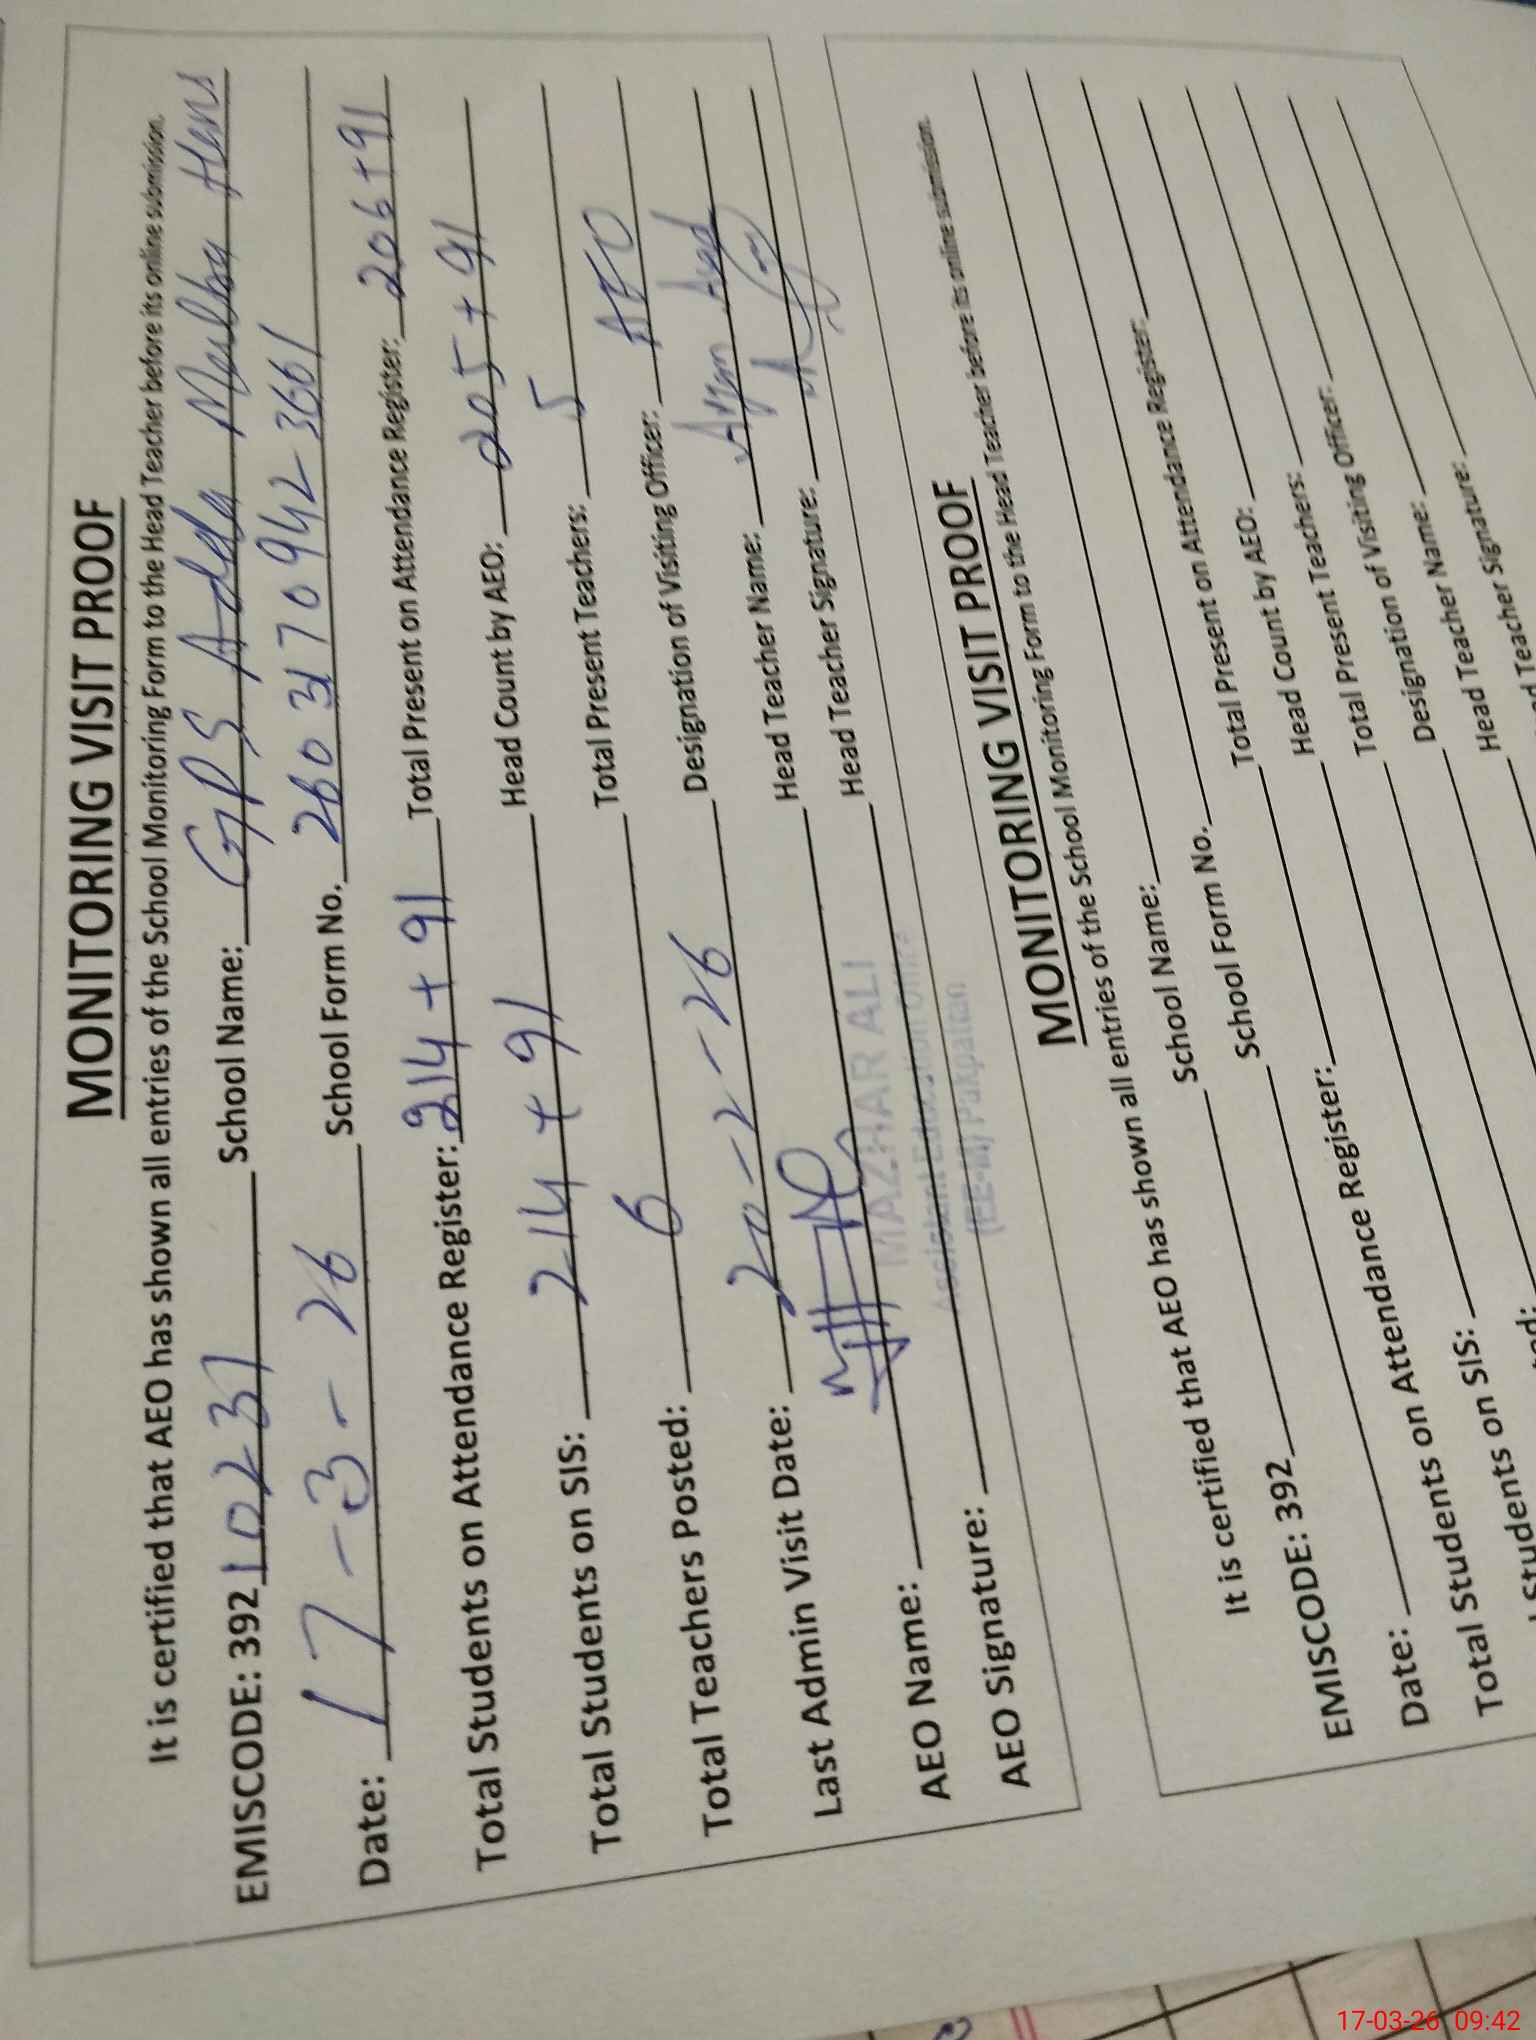 MONITORING VISIT PROOF
It is certified that AEO has shown all entries of the School Monitoring Form to the Head Teacher before its online submission.
EMISCODE: 392 10231 School Name: GPS Adda
Date: 17-3-26 School Form No. 2603170942-3661
Total Students on Attendance Register: 214 + 91 Total Present on Attendance Register: 206+91
Total Students on SIS: 214 + 91 Head Count by AEO: 205 + 91
Total Teachers Posted: 6 Total Present Teachers: 5
Last Admin Visit Date: 20-2-26 Designation of Visiting Officer: AEO
AEO Name: Head Teacher Name:
AEO Signature: Head Teacher Signature:
MAZHAR ALI
Assistant Education Officer
(EE-M) Pakpattan
MONITORING VISIT PROOF
It is certified that AEO has shown all entries of the School Monitoring Form to the Head Teacher before its online submission.
EMISCODE: 392 School Name:
Date: School Form No.
Total Students on Attendance Register: Total Present on Attendance Register:
Total Students on SIS: Head Count by AEO:
Total Present Teachers:
Designation of Visiting Officer:
Head Teacher Name:
Head Teacher Signature:
17-03-26 09:42